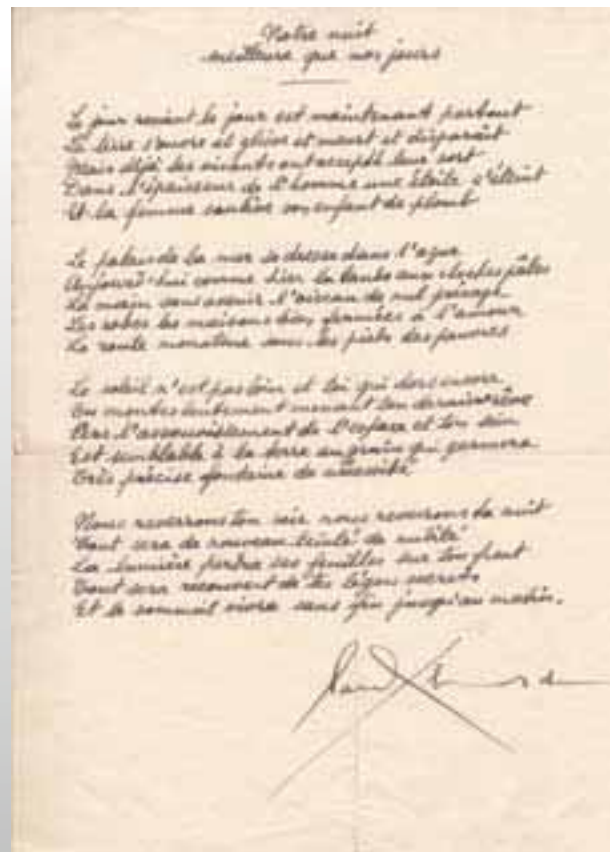 Notre nuit
meilleure que nos jours
Le jour revient le jour est maintenant partout
La terre s'ouvre et glisse et meurt et disparaît
Mais déjà les vivants ont accepté leur sort
Dans l'épaisseur de l'homme une étoile s'éteint
Et la femme son enfant de plomb
Le palais de la mer se dresse dans l'azur
Aujourd'hui comme hier la aux cloches pâles
La main sans avenir l'oiseau de nul présage
Les robes les maisons bien fermées à l'amour
La route monotone sous les pieds des pauvres
Le soleil n'est pas loin et toi qui dors encore
Tu montes lentement menant ton dernier rêve
Vers l'assouvissement de l'espace et ton sein
Est semblable à la terre au grain qui germera
Très précise fontaine de nécessité
Nous reverrons ton soir nous reverrons ta nuit
Tout sera de nouveau teinté de nudité
La lumière perdra ses feuilles sur ton front
Tout sera recouvert de tes secrets
Et le sommeil vivra sans fin jusqu'au matin.